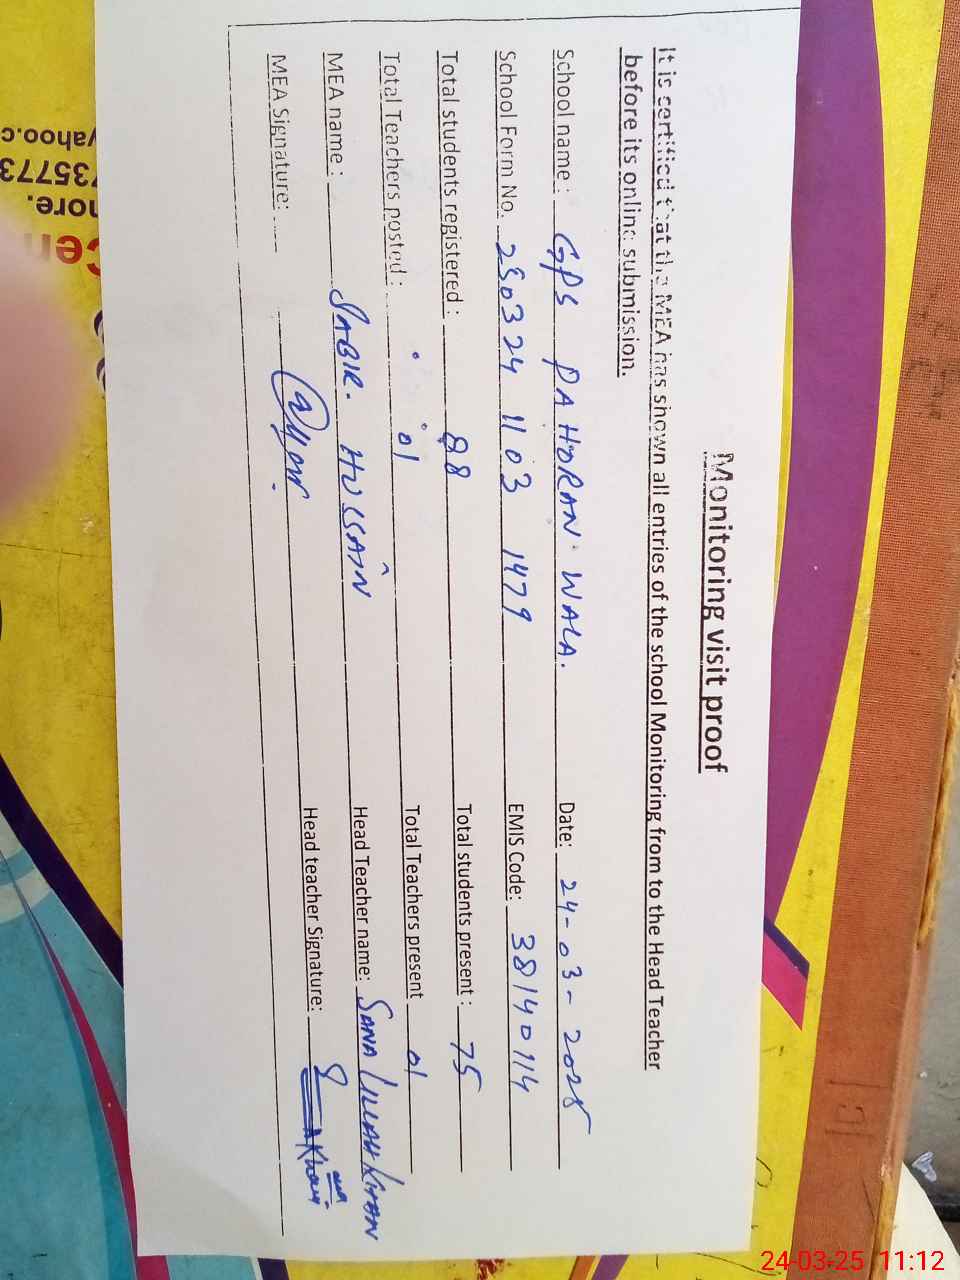 Monitoring visit proof
It is certified that the MEA has shown all entries of the school Monitoring from to the Head Teacher
before its online submission.
School name : GPS PAHORAN WALA. Date: 24-03-2025
School Form No. 250324 1103 1479 EMIS Code: 38140114
Total students registered : 88 Total students present : 75
Total Teachers posted : 01 Total Teachers present 01
MEA name : SABIR HUSSAIN Head Teacher name: SANA ULLAH KHAN
MEA Signature: Head teacher Signature:
yahoo.c
735773
hore.
cen
24-03-25 11:12